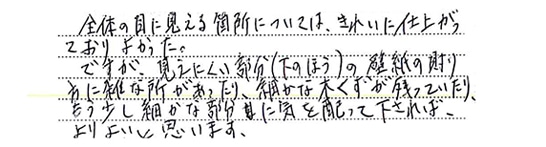 全体の目に見える箇所については、きれいに仕上がっ
ておりよかった。
ですが、見えにくい部分(下のほう)の壁紙の貼り
方に雑な所があったり、細かな木くずが残っていたり、
もう少し細かな部分に気を配って下されば、
よりよいと思います。